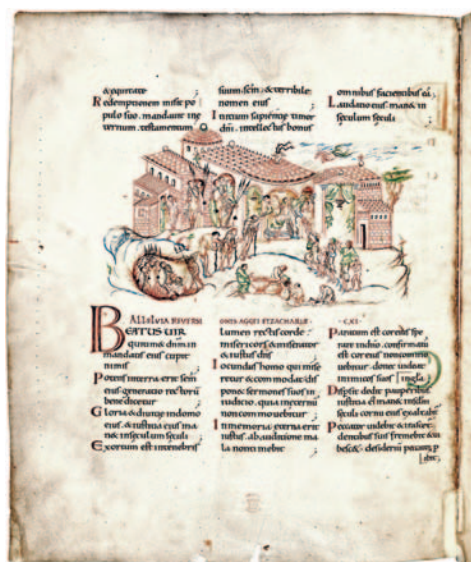 & equitate
Redemptionem misit po
pulo suo. mandauit in
&ernum. testamentum
suum. scm̄. & terribile
nomen eius
Initium sapientiae timor
dn̄i. intellectus bonus
omnibus facientibus eū.
Laudatio eius man& in
seculum seculi
ALLELUIA REVERSI
ONIS AGGEI ET ZACHARIAE
CXI.
BEATUS UIR
qui timet dn̄m in
mandatis eius cupit
nimis
Potens in terra erit semen
eius generatio rectorū
benedicetur
Gloria & diuitiae in domo
eius. & iustitia eius ma
n& in seculum seculi
Exortum est in tenebris
lumen rectis corde.
misericors & miserator
& iustus dn̄s
Iocundus homo qui mise
retur & commodat. dis
pon& sermones suos in
iudicio. quia in eternū
non commouebitur
In memoria eterna erit
iustus. ab auditione ma
la non timebit
Paratum est cor eius spe
rare in dn̄o. confirmatū
est cor eius non commo
uebitur. donec uideat
inimicos suos
Dispsit dedit pauperibus
iustitia ei man& in sclm̄
seculi cornu eius exaltabit
Peccator uidebit & irasc&
dentibus suis frem& & ta
besc&. desideriū peccator̄ p
ibit